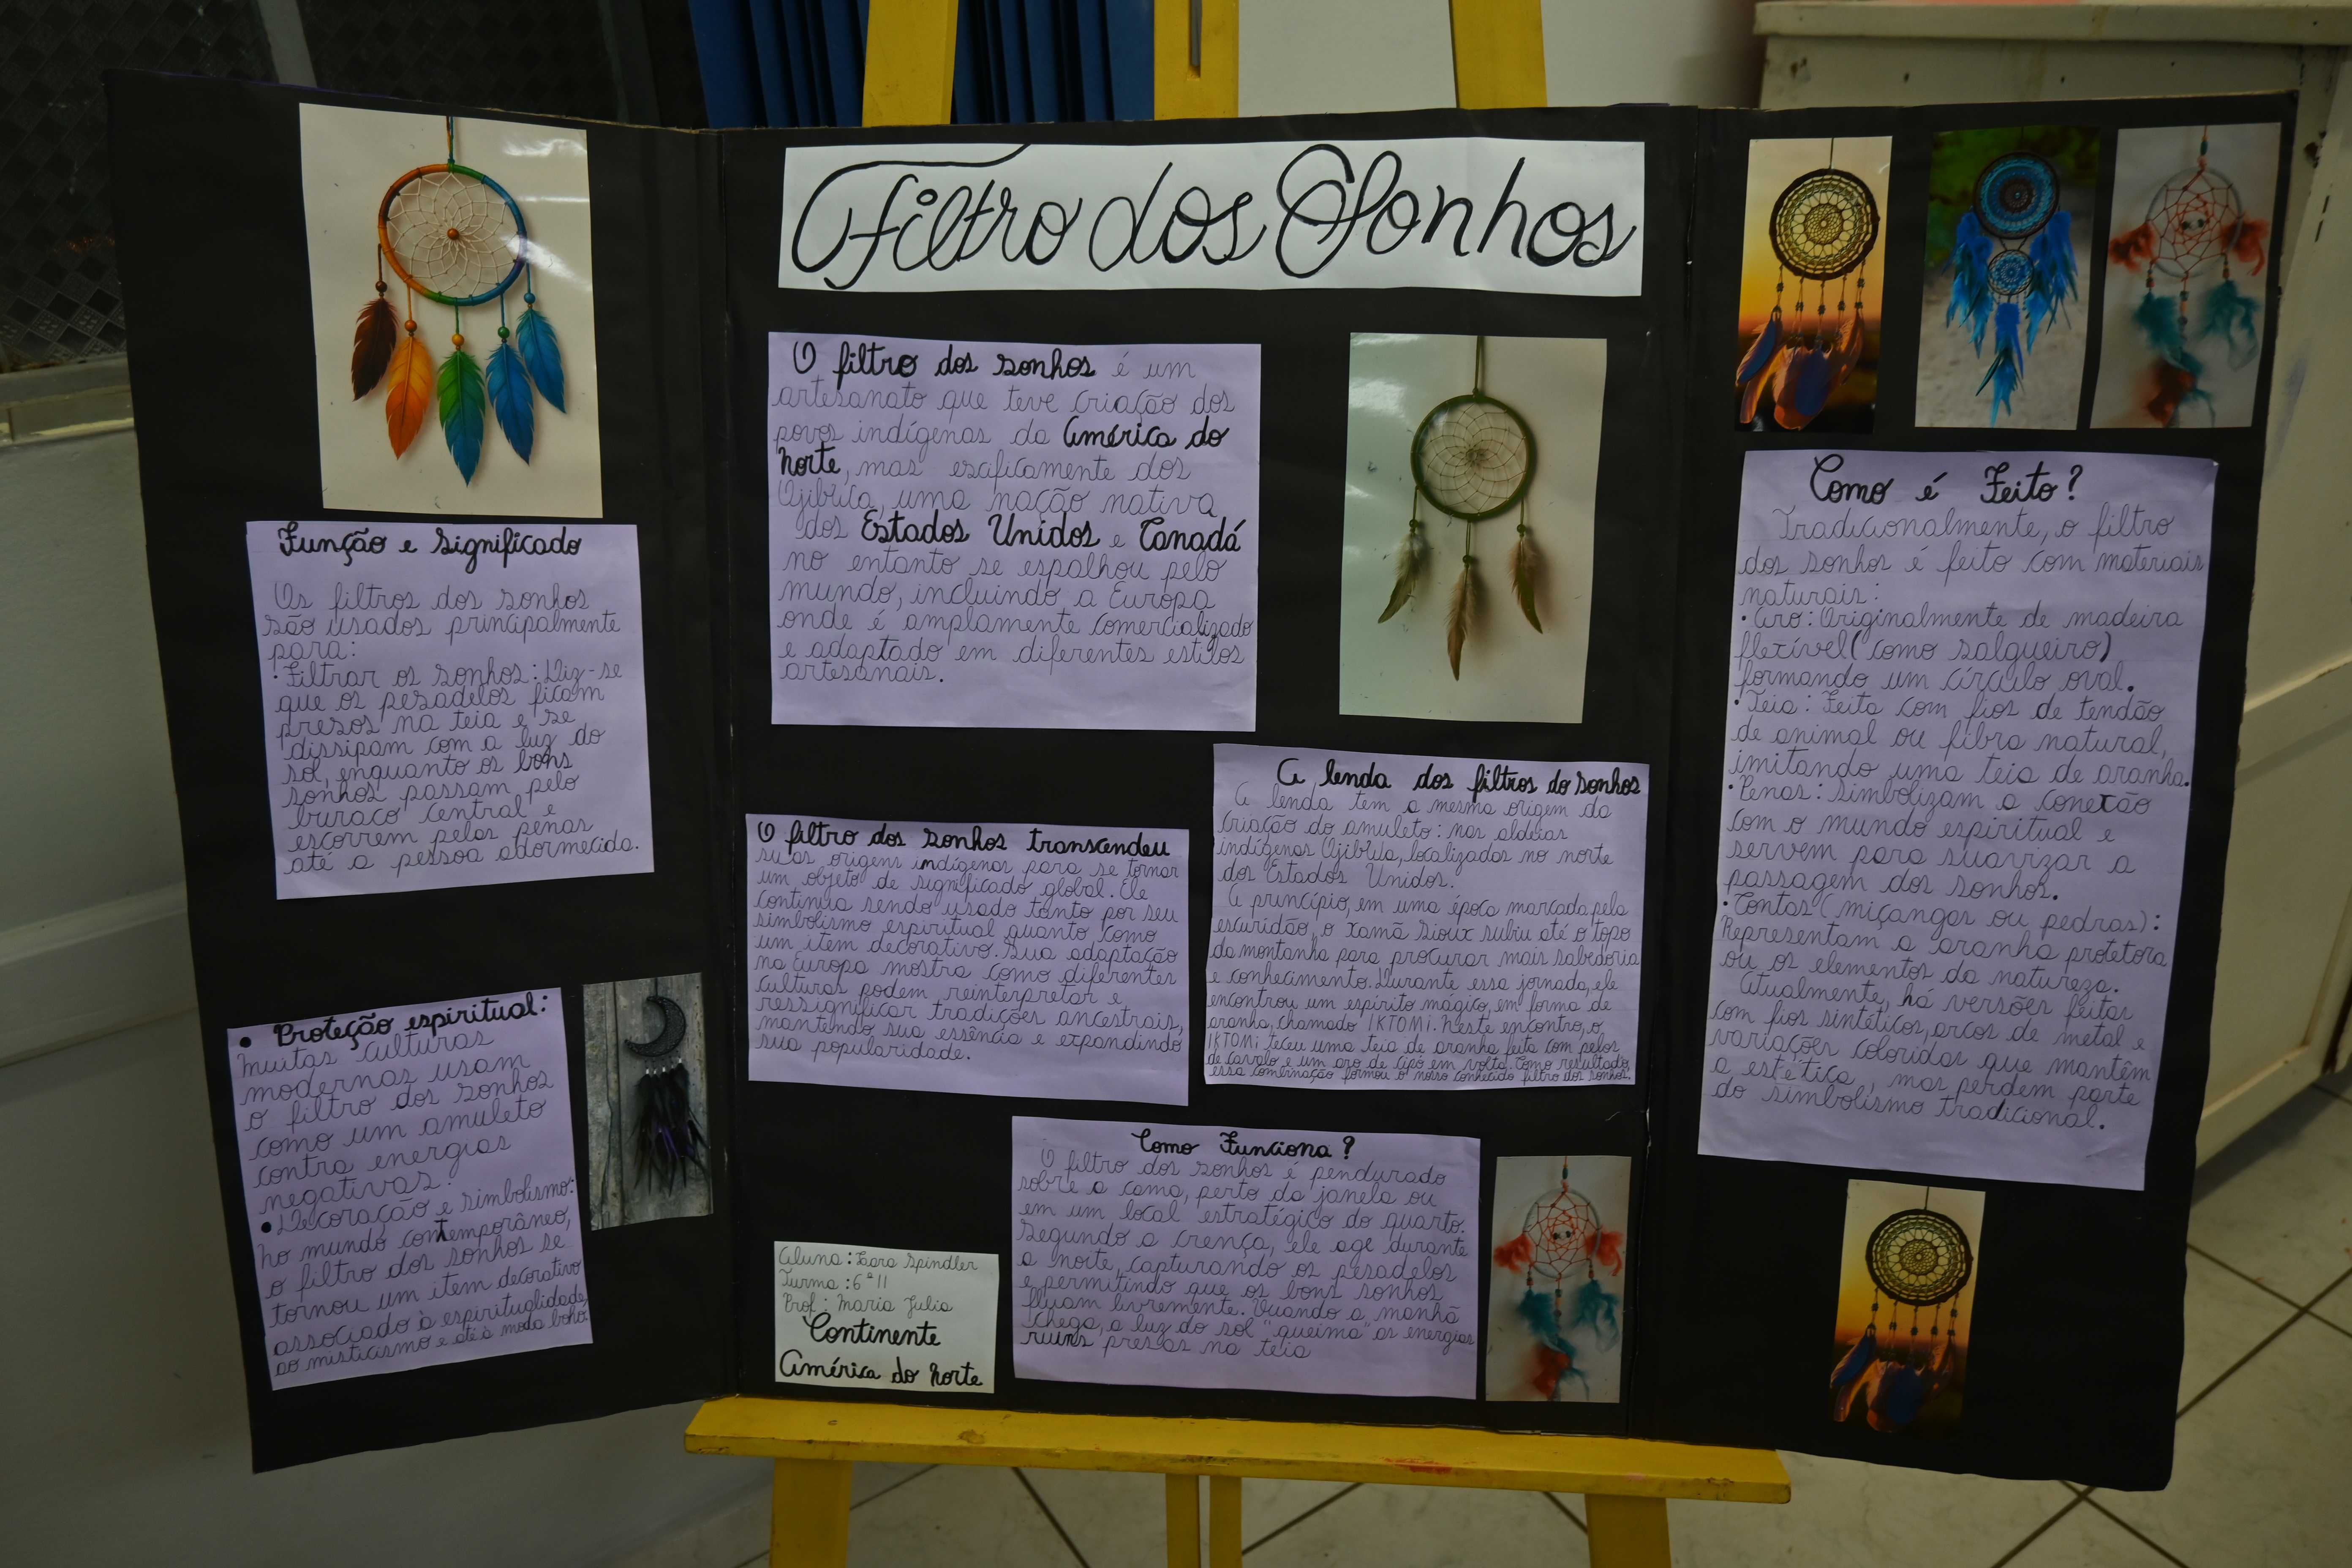 Filtro dos Sonhos
Função e significado
Os filtros dos sonhos
são usados principalmente
para:
• Filtrar os sonhos: Diz-se
que os pesadelos ficam
presos na teia e se
dissipam com a luz do
sol, enquanto os bons
sonhos passam pelo
buraco central e
escorrem pelas penas
até a pessoa adormecida.
• Proteção espiritual:
Muitas culturas
modernas usam
o filtro dos sonhos
como um amuleto
contra energias
negativas.
• Decoração e simbolismo:
No mundo contemporâneo,
o filtro dos sonhos se
tornou um item decorativo
associado à espiritualidade,
ao misticismo e até à moda boho.
O filtro dos sonhos é um
artesanato que teve criação dos
povos indígenas da América do
Norte, mas escificamente dos
Ojibwa, uma nação nativa
dos Estados Unidos e Canadá
no entanto se espalhou pelo
mundo, incluindo a Europa
onde é amplamente comercializado
e adaptado em diferentes estilos
artesanais.
O filtro dos sonhos transcendeu
suas origens indígenas para se tornar
um objeto de significado global. Ele
continua sendo usado tanto por seu
simbolismo espiritual quanto como
um item decorativo. Sua adaptação
na Europa mostra como diferentes
culturas podem reinterpretar e
ressignificar tradições ancestrais,
mantendo sua essência e expandindo
sua popularidade.
A lenda dos filtros do sonhos
A lenda tem a mesma origem da
criação do amuleto: nas aldeias
indígenas Ojibwa, localizadas no norte
dos Estados Unidos.
A princípio, em uma época marcada pela
escuridão, o xamã Sioux subiu até o topo
da montanha para procurar mais sabedoria
e conhecimento. Durante essa jornada, ele
encontrou um espírito mágico, em forma de
aranha, chamado IKTOMi. Neste encontro, o
IKTOMi teceu uma teia de aranha feita com pelos
de cavalo e um aro de cipó em volta. Como resultado,
essa combinação formou o nosso conhecido filtro dos sonhos.
Como Funciona?
O filtro dos sonhos é pendurado
sobre a cama, perto da janela ou
em um local estratégico do quarto.
Segundo a crença, ele age durante
a noite, capturando os pesadelos
e permitindo que os bons sonhos
fluam livremente. Quando a manhã
chega, a luz do sol "queima" as energias
ruins presas na teia
Aluna: Lara Spindler
Turma: 6º11
Prof: Maria Julia
Continente
América do Norte
Como é Feito?
Tradicionalmente, o filtro
dos sonhos é feito com materiais
naturais:
• Aro: Originalmente de madeira
flexível (como salgueiro)
formando um círculo oval.
• Teia: Feita com fios de tendão
de animal ou fibra natural,
imitando uma teia de aranha.
• Penas: Simbolizam a conexão
com o mundo espiritual e
servem para suavizar a
passagem dos sonhos.
• Contas (miçangas ou pedras):
Representam a aranha protetora
ou os elementos da natureza.
Atualmente, há versões feitas
com fios sintéticos, arcos de metal e
variações coloridas que mantêm
a estética, mas perdem parte
do simbolismo tradicional.